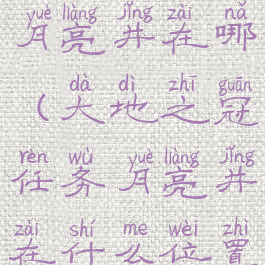 yuè liàng jǐng zài nǎ
月亮井在哪
dà dì zhī guān
(大地之冠
rèn wù yuè liàng jǐng
任务月亮井
zài shí me wèi zhì
在什么位置